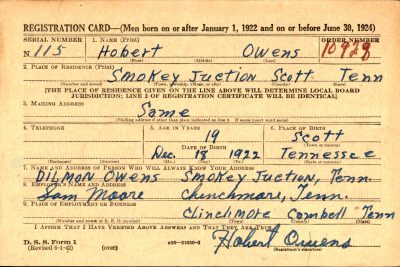 REGISTRATION CARD—(Men born on or after January 1, 1922 and on or before June 30, 1924)
SERIAL NUMBER 1. NAME (Print) ORDER NUMBER
N. 115 Hobert Owens 10928
(First) (Middle) (Last)
2. PLACE OF RESIDENCE (Print)
SmoKey Juction Scott Tenn
(Number and street) (Town, township, village, or city) (County) (State)
[THE PLACE OF RESIDENCE GIVEN ON THE LINE ABOVE WILL DETERMINE LOCAL BOARD
JURISDICTION; LINE 2 OF REGISTRATION CERTIFICATE WILL BE IDENTICAL]
3. MAILING ADDRESS
Same
(Mailing address if other than place indicated on line 2. If same insert word same)
4. TELEPHONE 5. AGE IN YEARS 6. PLACE OF BIRTH
19 Scott
DATE OF BIRTH (Town or county)
Dec. 18 1922 Tennessee
(Exchange) (Number) (Mo.) (Day) (Yr.) (State or country)
7. NAME AND ADDRESS OF PERSON WHO WILL ALWAYS KNOW YOUR ADDRESS
DILMON OWENS SMOKEY JUCTION, Tenn.
8. EMPLOYER'S NAME AND ADDRESS
Sam Moore Clinchmore, Tenn.
9. PLACE OF EMPLOYMENT OR BUSINESS
Clinchmore Cambell Tenn
(Number and street or R. F. D. number) (Town) (County) (State)
I AFFIRM THAT I HAVE VERIFIED ABOVE ANSWERS AND THAT THEY ARE TRUE.
D. S. S. Form 1
(Revised 6-1-42) (over) Hobert Owens
(Registrant's signature)